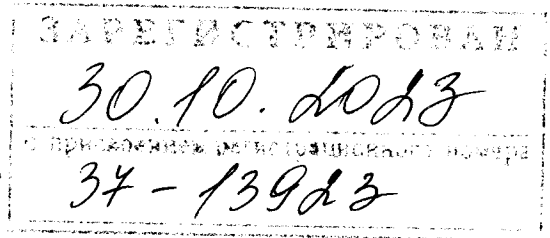 ЗАРЕГИСТРИРОВАН
30.10.2023
с присвоением регистрационного номера
37-13923